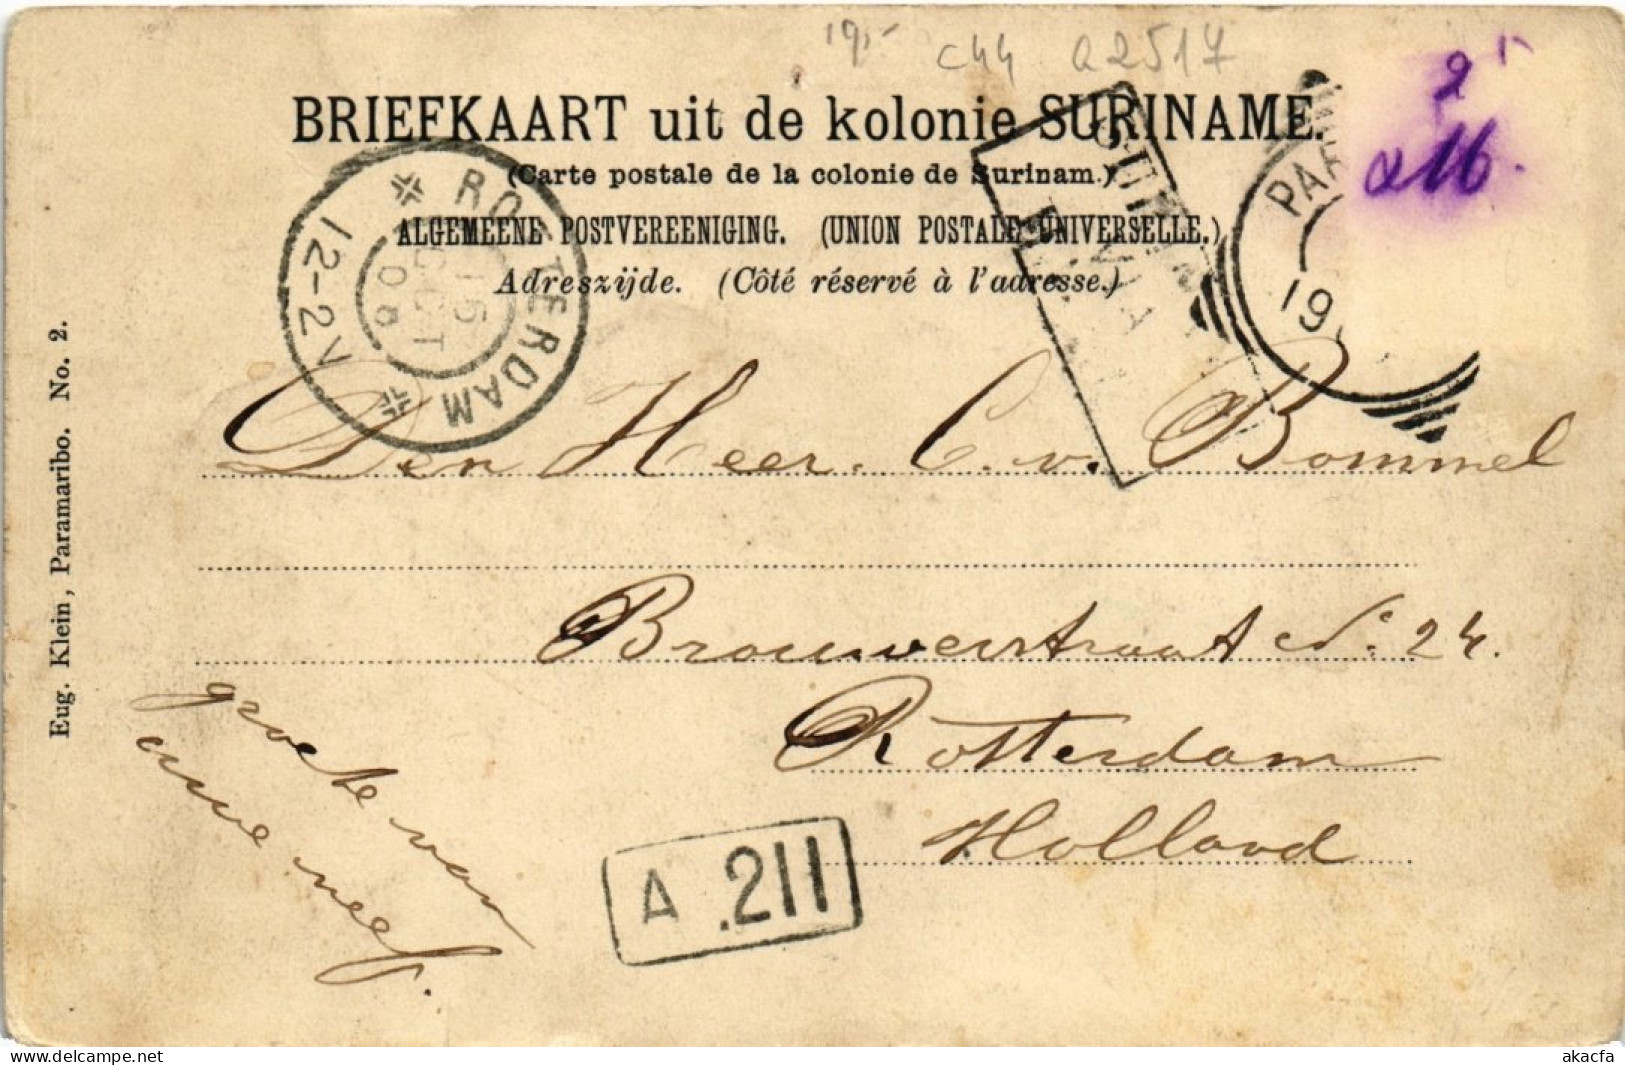 19,- C44 a2517
2
a16.
BRIEFKAART uit de kolonie SURINAME.
(Carte postale de la colonie de Surinam.)
ALGEMEENE POSTVEREENIGING. (UNION POSTALE UNIVERSELLE.)
Adreszijde. (Côté réservé à l'adresse.)
ROTTERDAM
12-2V
15
OCT
06
PAR
19
Den Heer. C. v. Bommel
Brouwerstraat No 24.
Rotterdam
Holland
groete van
uwe neef.
A .211
Eug. Klein, Paramaribo. No. 2.
akacfa www.delcampe.net